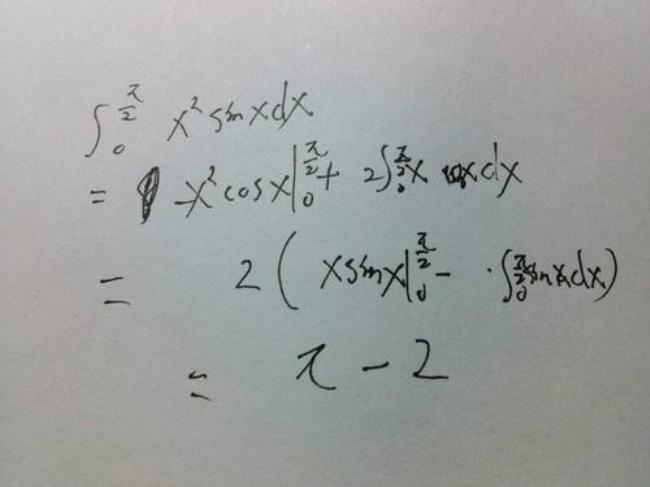 ∫₀^(π/2) x² sin x dx
= -x² cos x |₀^(π/2) + 2∫₀^(π/2) x cos x dx
= 2 ( x sin x |₀^(π/2) - ∫₀^(π/2) sin x dx)
= π - 2